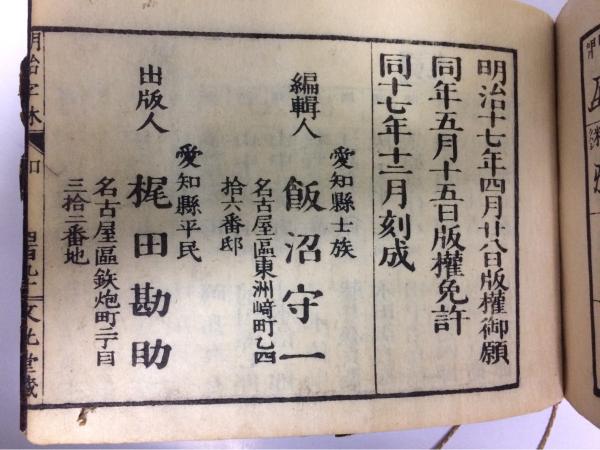 明治十七年四月廿八日版權御願
同年五月十五日版權免許
同十七年十二月刻成
編輯人
愛知縣士族
飯沼守一
名古屋區東洲﨑町乙四
拾六番邸
出版人
愛知縣平民
梶田勘助
名古屋區鉄炮町二丁目
三拾二番地
明治字林
文光堂藏